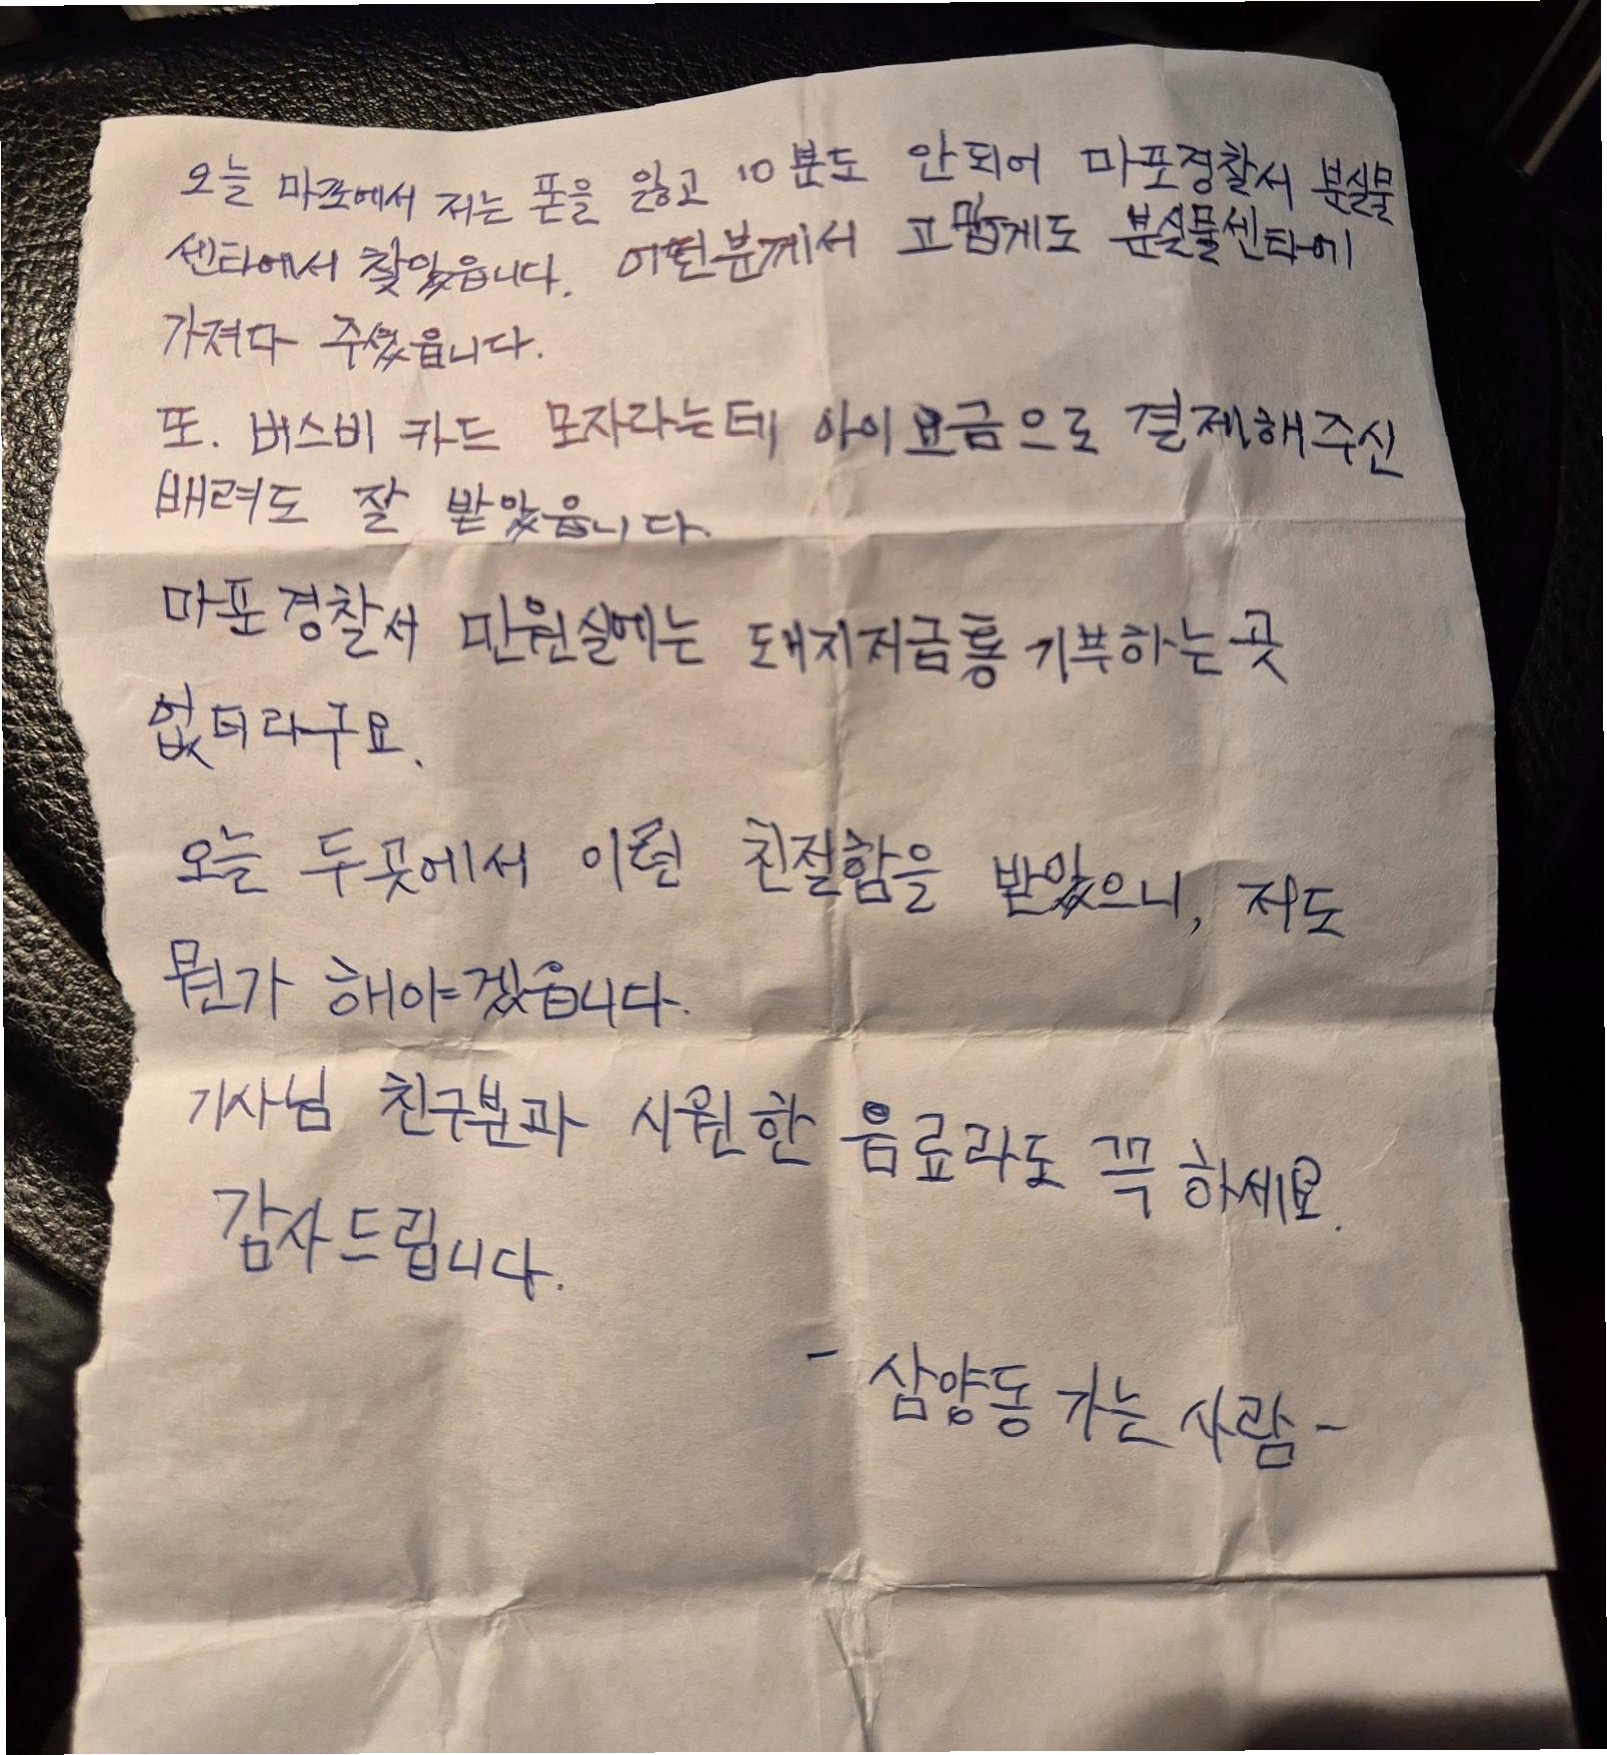 오늘 마포에서 저는 폰을 잃고 10분도 안되어 마포경찰서 분실물
센타에서 찾았읍니다. 어떤분께서 고맙게도 분실물센타에
가져다 주셨읍니다.
또. 버스비 카드 모자라는데 아이요금으로 결제해주신
배려도 잘 받았읍니다.
마포경찰서 민원실에는 돼지저금통 기부하는곳
없더라구요.
오늘 두곳에서 이런 친절함을 받았으니, 저도
뭔가 해야겠읍니다.
기사님 친구분과 시원한 음료라도 끅 하세요.
감사드립니다.
- 삼양동 가는 사람 -